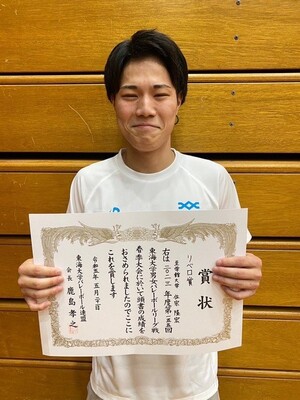 賞状
リベロ賞
右は二〇二三年度第一五五回
東海大学男女バレーボールリーグ戦
春季大会に於いて頭書の成績を
おさめられましたのでここに
これを賞します
令和五年五月
東海大学バレーボール連盟
会長 鹿島 孝之